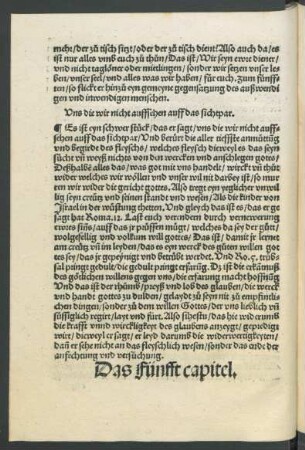 mehr/ der zů tisch sitzt/ oder der zů tisch dient? Also auch da/ es
ist nur alles vmb euch zů thůn/ Das ist/ Wir seyn ewre diener/
vnd nicht taglöner oder mietlingen/ sonder wir setzen vnser le-
ben/ vnser seel/ vnd alles was wir haben/ für euch. Zum fünff-
ten/ so flickt er hinzů eyn gemeyne gegensatzung des außwendi
gen vnd inwendigen menschen.
Vns die wir nicht auffsehen auff das sichtpar.
¶ Es ist eyn schwer stück/ das er sagt/ vns die wir nicht auff-
sehen auff das sichtpar/ Vnd berürt die aller tieffste anmůtung
vnd begirde des fleyschs/ welches fleysch dieweyl es das seyn
sůcht vn weyß nichts von den wercken vnd anschlegen gottes/
Deßhalbē alles das/ was got mit vns handelt/ wirckt vn thůt
wider welches wir wöllen vnd vnser vil mit darbey ist/ so mur
ren wir wider die gericht gottes. Also tregt eyn yeglicher vnwil
lig seyn creutz wider seinen standt vnd wesen/ Als die kinder von
Israel in der wüstung theten. Vnd gleych das ist es/ das er ge
sagt hat Roma.12. Last euch verendern durch vernewerung
ewres sins/ auff das jr prüffen mügt/ welches da sey der gůt/
wolgefellig vnd volkum will Gottes/ Das ist/ damit jr lernet
am creutz vn im leyden/ das es eyn werck des gůten willen got
tes sey/ das jr gepeynigt vnd betrübt werdet. Vnd Ro.5. trüb-
sal pringt gedult/ die gedult pringt erfarūg. Dz ist die erkantnuß
des götlichen willens gegen vns/ die erfarung macht hoffnūg
Vnd das ist der rhůmb/ preyß vnd lob des glauben/ die werck
vnd handt gottes zů dulden/ gelaydt zů seyn mit zů empfintli-
chen dingen/ sonder zů dem willen Gottes/ der vns lieblich vn
süssiglich regirt/ layt vnd fürt. Also sihestu/ das hie wid̕ rumb
die krafft vnnd wircklichkeyt des glaubens anzeygt/ gepredigt
wirt/ dieweyl er sagt/ er leyd darumb die widerwertigkeyten/
dañ er sehe nicht an das fleyschlich wesen/ sonder das ende der
anfechtung vnd versůchung.
Das Fünfft capitel.